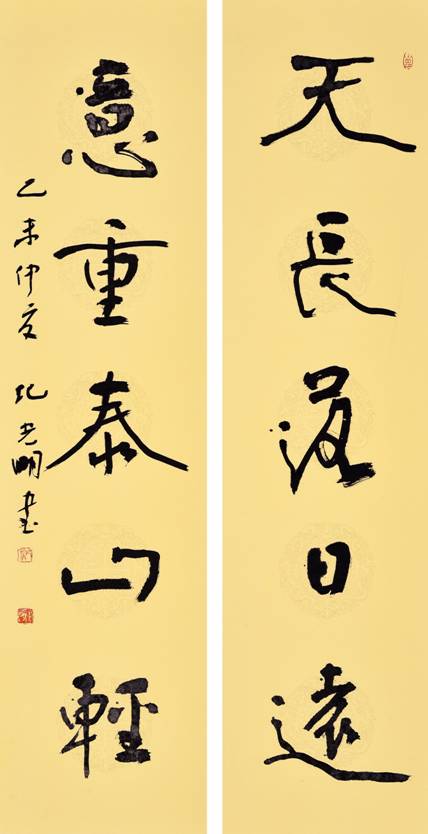 天長落日遠
意重泰山輕
乙未仲夏 紀光明書